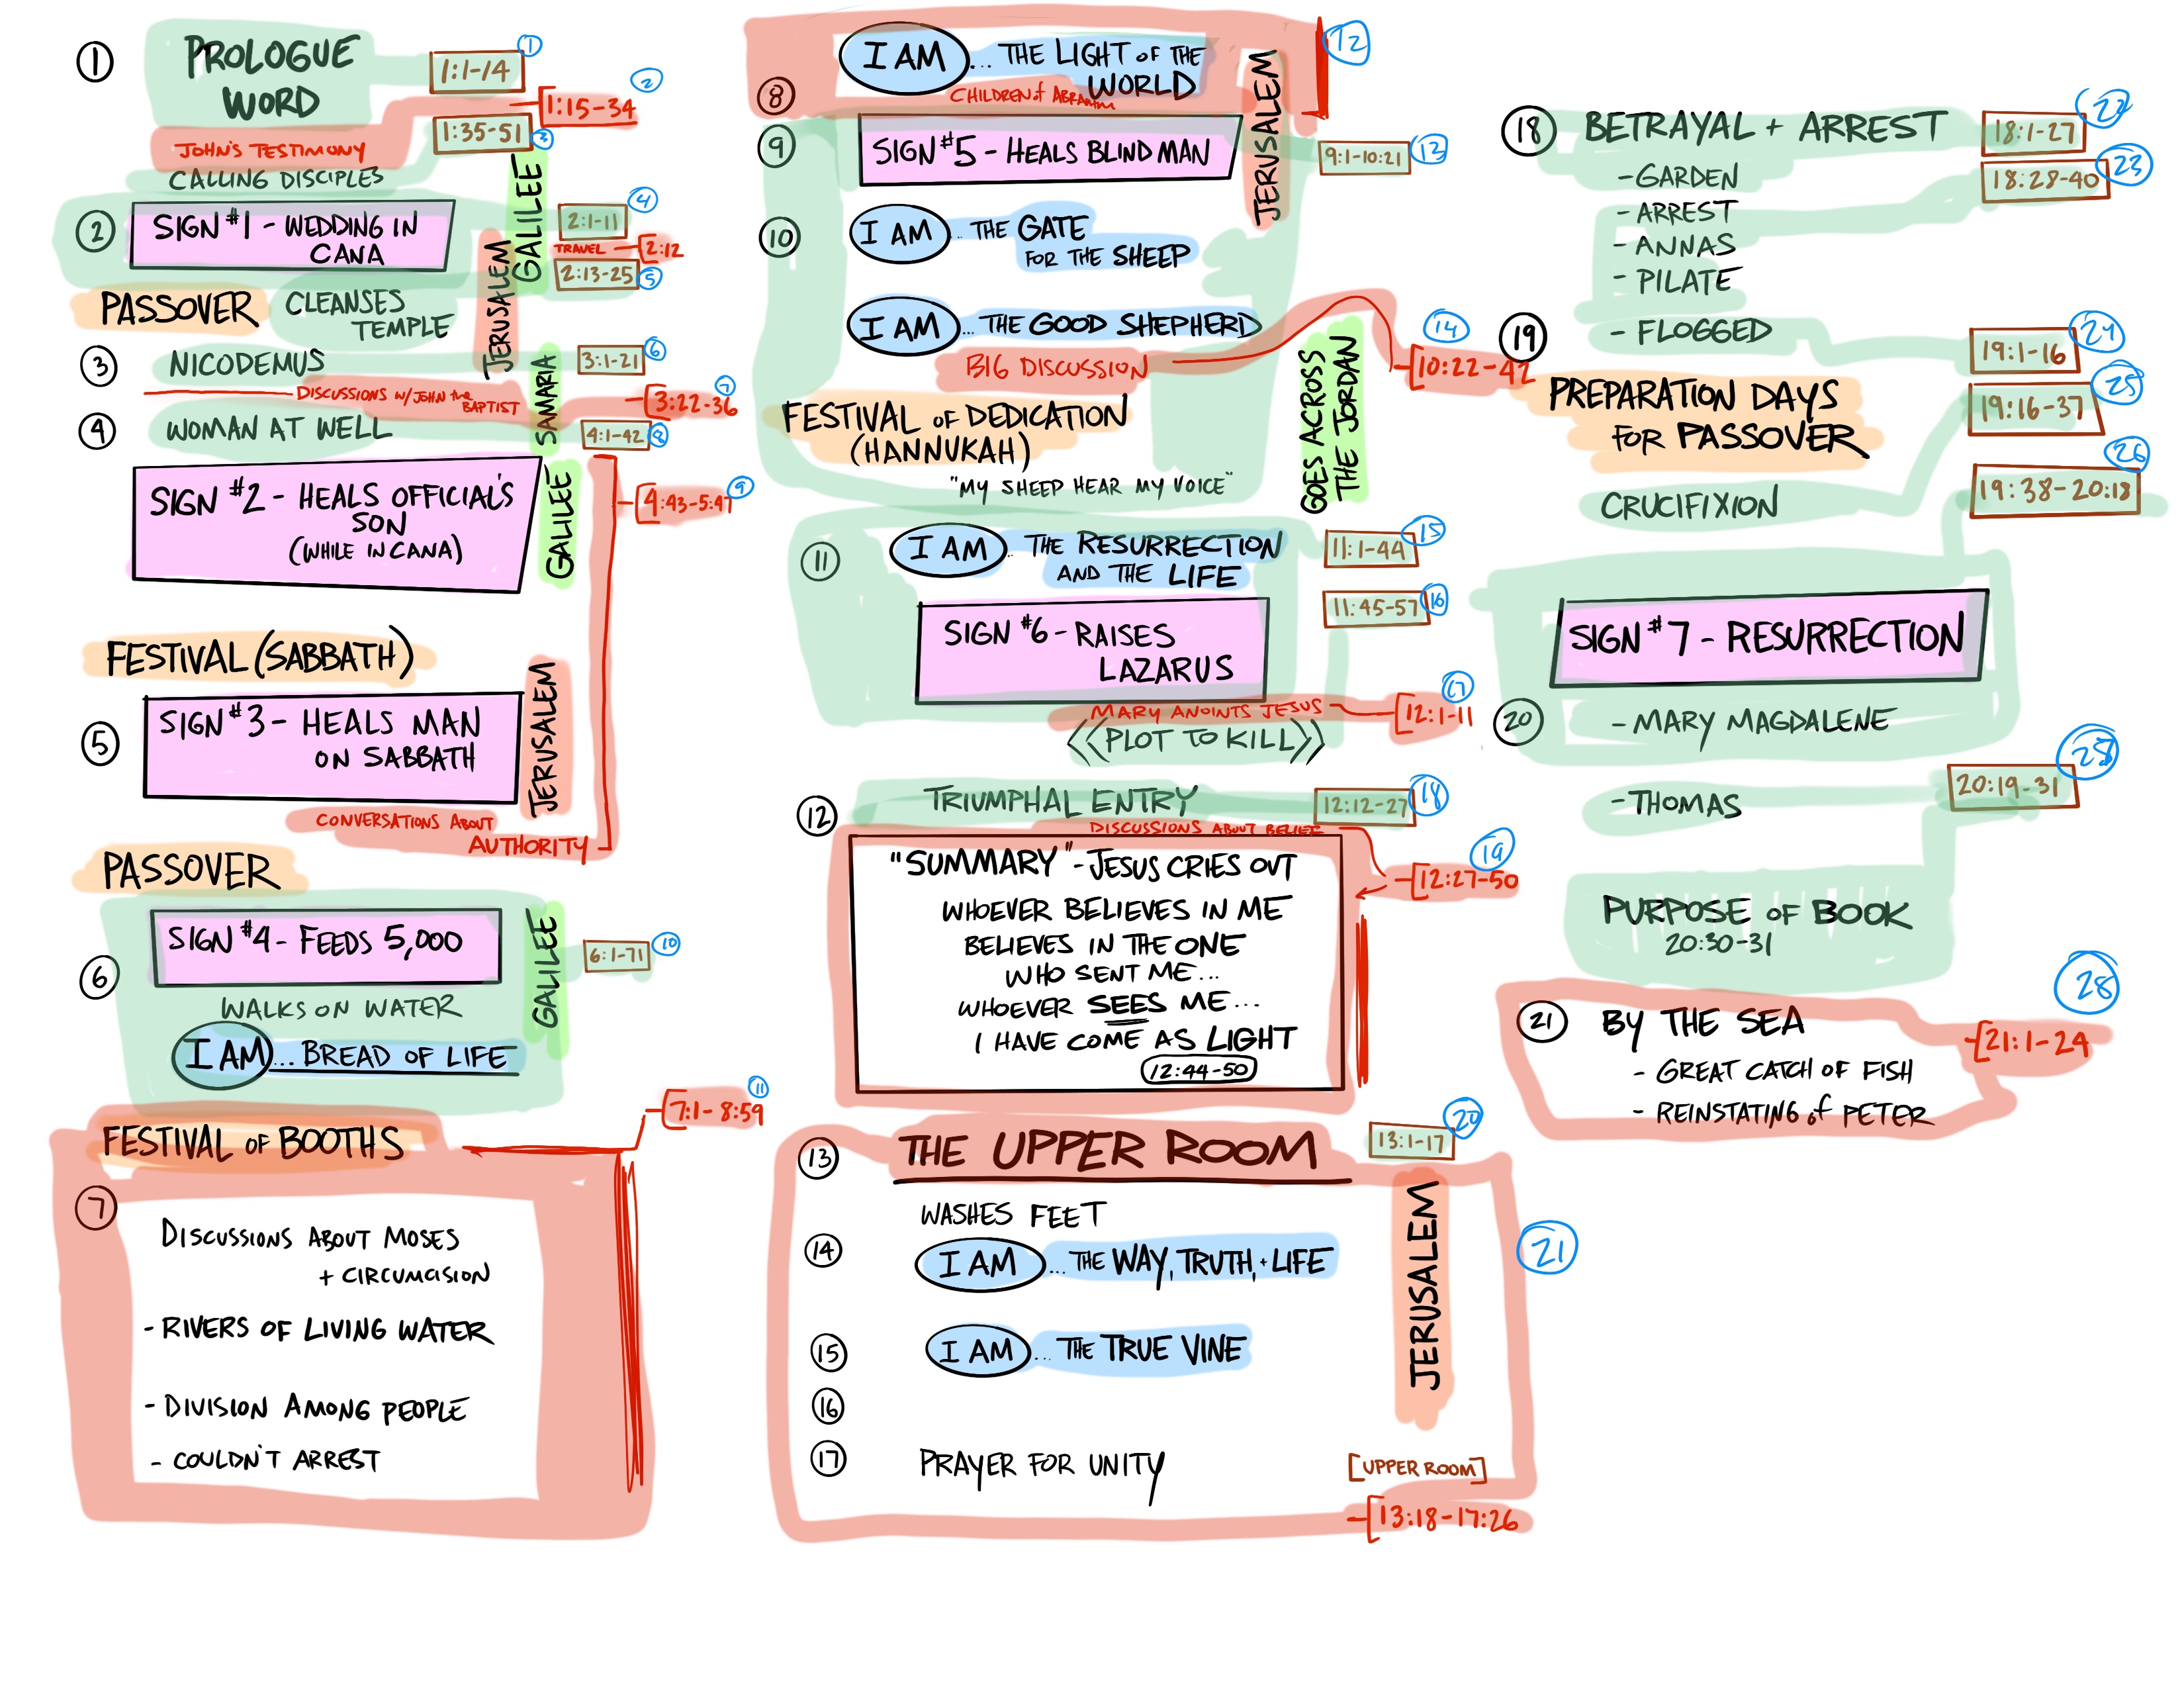 1 PROLOGUE
WORD
1:1-14 1
1:15-34 2
JOHN'S TESTIMONY
1:35-51 3
CALLING DISCIPLES
GALILEE
2 SIGN #1 - WEDDING IN
CANA
2:1-11 4
TRAVEL 2:12
2:13-25 5
JERUSALEM
PASSOVER CLEANSES
TEMPLE
3 NICODEMUS 3:1-21 6
DISCUSSIONS W/JOHN the
BAPTIST
3:22-36 7
SAMARIA
4 WOMAN AT WELL 4:1-42 8
SIGN #2 - HEALS OFFICIAL'S
SON
(WHILE IN CANA)
GALILEE
4:43-5:47 9
FESTIVAL (SABBATH)
5 SIGN #3 - HEALS MAN
ON SABBATH
JERUSALEM
CONVERSATIONS ABOUT
AUTHORITY
PASSOVER
SIGN #4 - FEEDS 5,000
6
GALILEE
6:1-71 10
WALKS ON WATER
I AM... BREAD OF LIFE
7:1-8:59 11
FESTIVAL OF BOOTHS
7
DISCUSSIONS ABOUT MOSES
+ CIRCUMCISION
- RIVERS OF LIVING WATER
- DIVISION AMONG PEOPLE
- COULDN'T ARREST
I AM ... THE LIGHT OF THE
WORLD
12
8 CHILDREN of ABRAHAM
JERUSALEM
9 SIGN #5 - HEALS BLIND MAN
9:1-10:21 13
10 I AM .. THE GATE
FOR THE SHEEP
I AM ... THE GOOD SHEPHERD
BIG DISCUSSION
14
10:22-42
FESTIVAL OF DEDICATION
(HANNUKAH)
GOES ACROSS
THE JORDAN
"MY SHEEP HEAR MY VOICE"
11 I AM .. THE RESURRECTION
AND THE LIFE
11:1-44 15
11:45-57 16
SIGN #6 - RAISES
LAZARUS
MARY ANOINTS JESUS
12:1-11 17
<<PLOT TO KILL>>
12 TRIUMPHAL ENTRY 12:12-27 18
DISCUSSIONS ABOUT BELIEF
12:27-50 19
"SUMMARY" - JESUS CRIES OUT
WHOEVER BELIEVES IN ME
BELIEVES IN THE ONE
WHO SENT ME...
WHOEVER SEES ME...
I HAVE COME AS LIGHT
12:44-50
13 THE UPPER ROOM 13:1-17 20
WASHES FEET
JERUSALEM
14 I AM ... THE WAY, TRUTH, + LIFE
21
15 I AM ... THE TRUE VINE
16
17 PRAYER FOR UNITY
[UPPER ROOM]
13:18-17:26
18 BETRAYAL + ARREST 18:1-27 22
- GARDEN
18:28-40 23
- ARREST
- ANNAS
- PILATE
19 - FLOGGED
19:1-16 24
PREPARATION DAYS
FOR PASSOVER
19:16-37 25
CRUCIFIXION
19:38-20:18 26
SIGN #7 - RESURRECTION
20 - MARY MAGDALENE
- THOMAS
20:19-31
PURPOSE OF BOOK
20:30-31
28
21 BY THE SEA
21:1-24
- GREAT CATCH OF FISH
- REINSTATING of PETER